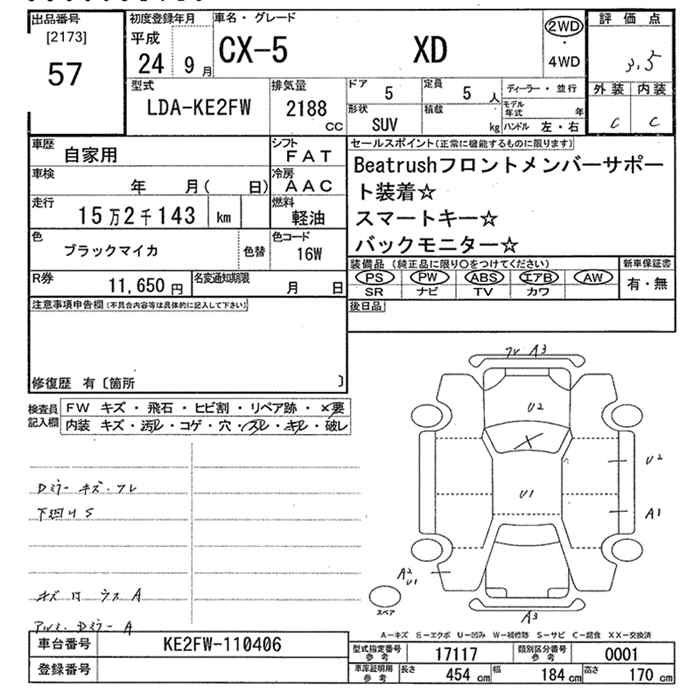 出品番号 初度登録年月 車名・グレード 評価点
[2173] 平成 2WD
57 24 9月 CX-5 XD ・ 3.5
4WD
型式 排気量 ドア 5 定員 5人 ディーラー・並行 外装 内装
LDA-KE2FW 2188cc 形状 SUV 積載 kg モデル年式 年 C C
ハンドル 左・右
車歴 自家用 シフト FAT セールスポイント(正常に機能するものに限ります)
車検 年 月( 日) 冷房 AAC Beatrushフロントメンバーサポー
走行 15万2千143 km 燃料 軽油 ト装着☆
スマートキー☆
色 ブラックマイカ 色替 色コード 16W バックモニター☆
R券 11,650円 名変通知期限 月 日 装備品(純正品に限り○をつけてください) 新車保証書
PS PW ABS エアB AW 有・無
SR ナビ TV カワ
注意事項申告欄(不具合内容等は具体的に記入して下さい) 後日品
修復歴 有〔箇所 〕
検査員 FW キズ・飛石・ヒビ割・リペア跡・×要
記入欄 内装 キズ・汚レ・コゲ・穴・スレ・キレ・破レ
フレ A3
U2
U2
Dミラー キズ・フレ
U1
下廻りS A1
A2
U1
キズ日 ウス A スペア
A3
Dミラー A
A-キズ E-エクボ U-凹み W-補修跡 S-サビ C-腐食 XX-交換済
車台番号 KE2FW-110406 型式指定番号 参考 17117 類別区分番号 参考 0001
登録番号 車庫証明用 参考 長さ 454cm 幅 184cm 高さ 170cm